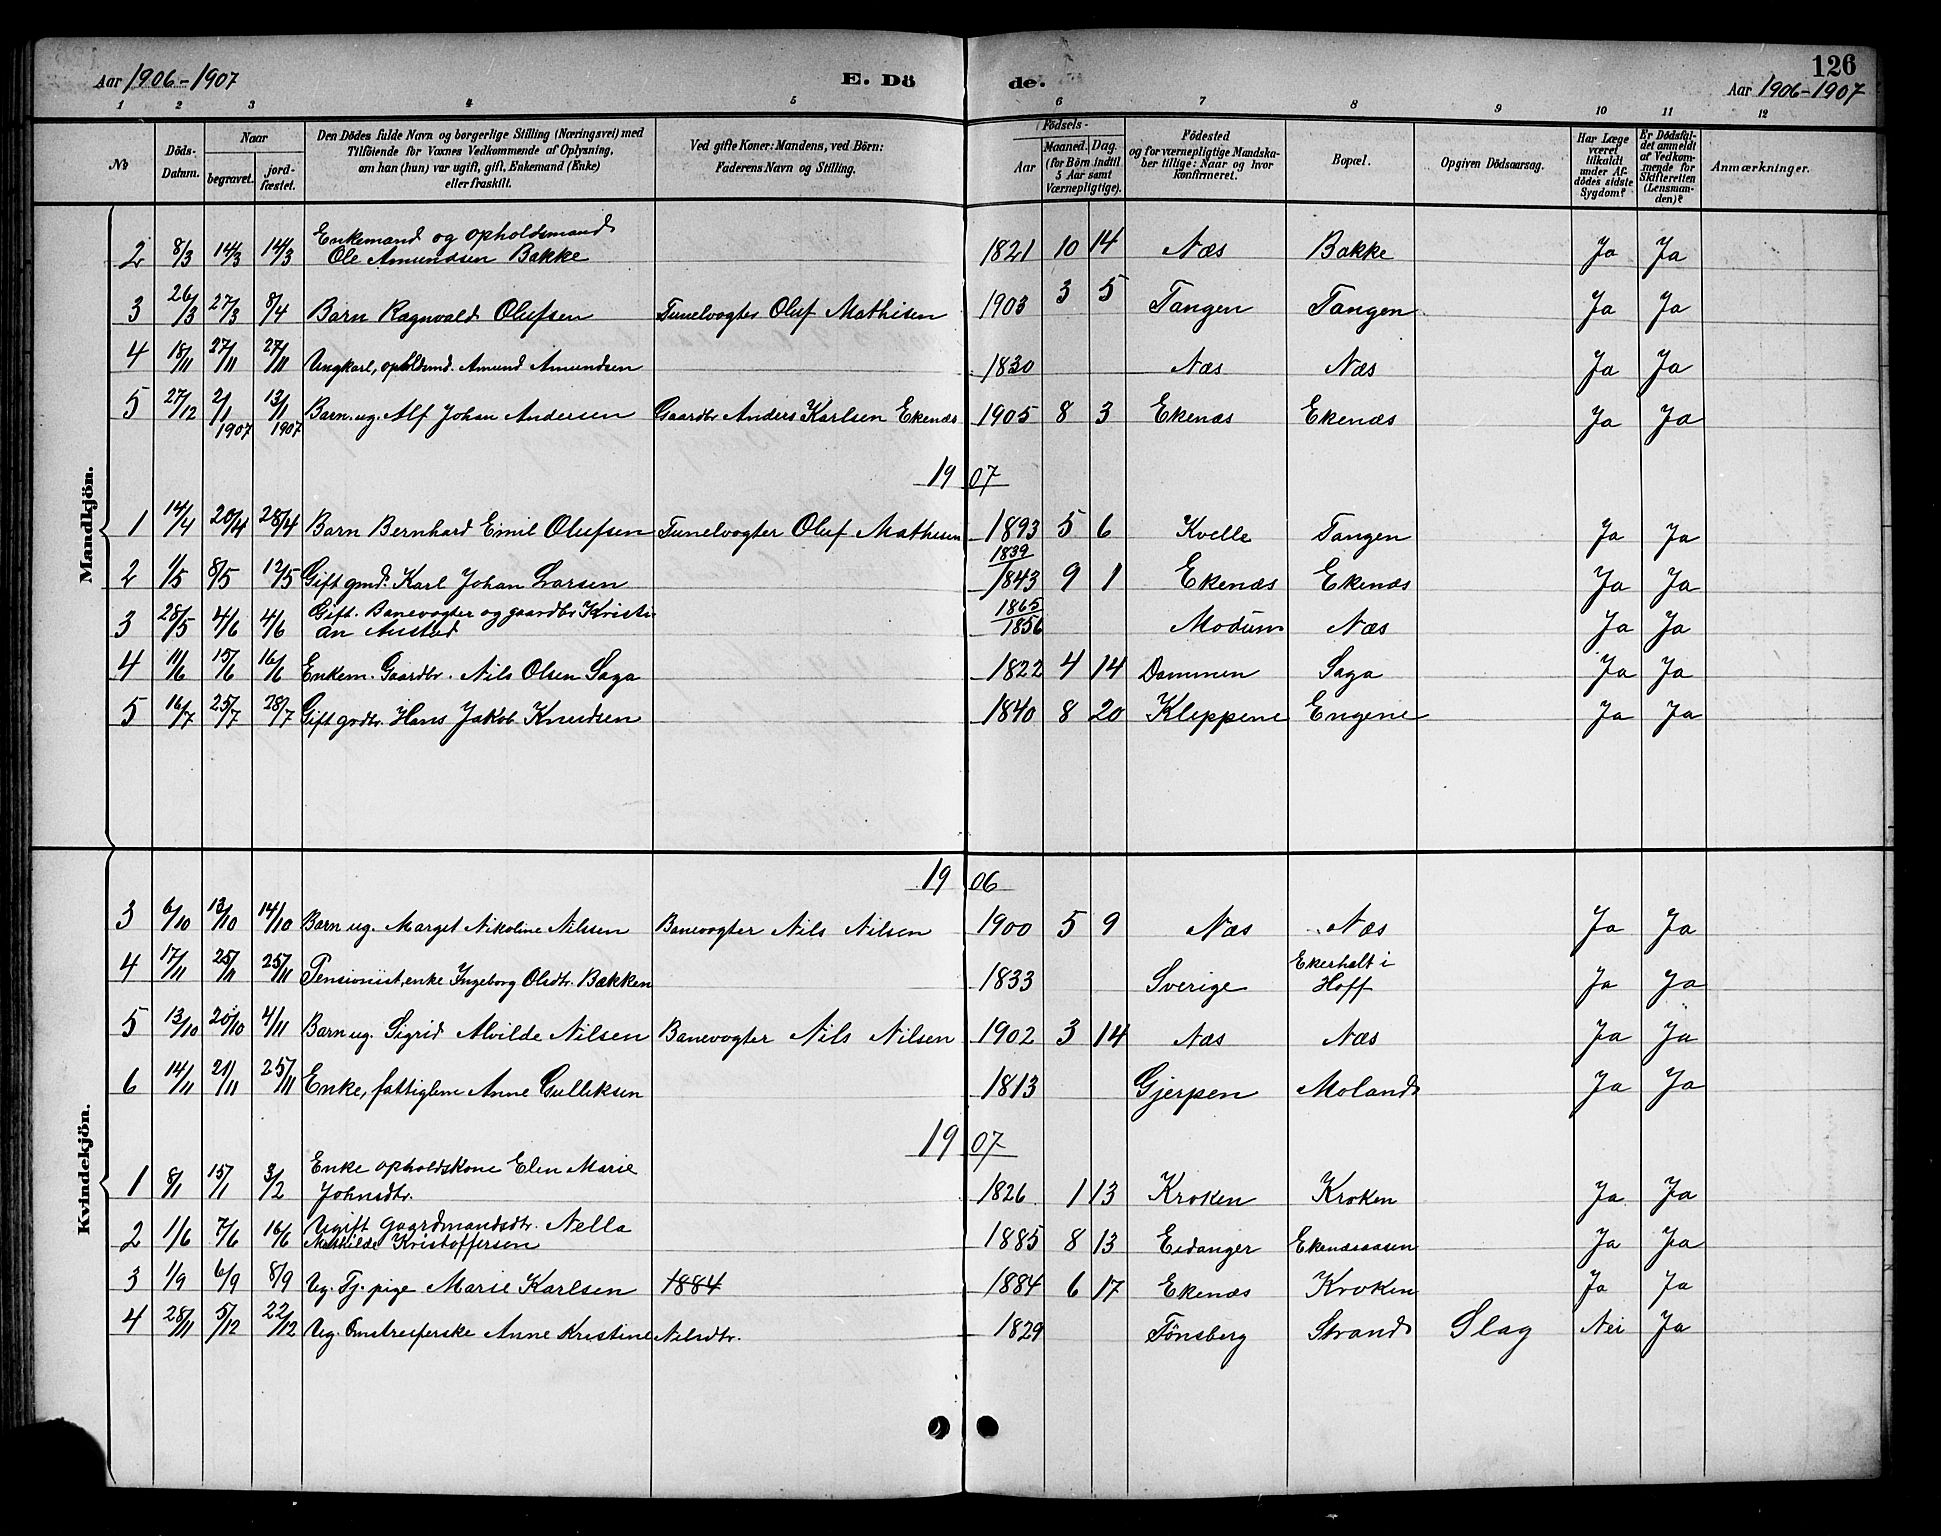 126
Aar 1906-1907 E. Dö de. Aar 1906-1907
1 2 3 4 5 6 7 8 9 10 11 12
No
Döds-Datum.
Naar
begravet.
jord-fæstet.
Den Dödes fulde Navn og borgerlige Stilling (Næringsvei) med
Tilföiende for Voxnes Vedkommende af Oplysning,
om han (hun) var ugift, gift, Enkemand (Enke)
eller fraskilt.
Ved gifte Koner: Mandens, ved Börn:
Faderens Navn og Stilling.
Födsels-
Aar
Maaned. Dag.
(for Börn indtil
5 Aar samt
Værnepligtige).
Födested
og for værnepligtige Mandska-
ber tillige: Naar og hvor
konfirmeret.
Bopæl.
Opgiven Dödsaarsag.
Har Læge
været
tilkaldt
under Af-
dödes sidste
Sygdom?
Er Dödsfal-
det anmeldt
af Vedkom-
mende for
Skifteretten
(Lensman-
den)?
Anmærkninger.
Mandkjön.
Enkemand og opholdsmand
2 8/3 14/3 14/3 Ole Amundsen Bakke 1821 10 14 Næs Bakke Ja Ja
3 26/3 27/3 8/4 Barn Ragnvald Olufsen Tunelvogter Oluf Mathisen 1903 3 5 Tangen Tangen Ja Ja
4 18/11 27/11 27/11 Ungkarl, opholdsmd. Amund Amundsen 1830 Næs Næs Ja Ja
5 27/12 2/1 1907 13/1 1907 Barn. ug. Alf Johan Andersen Gaardbr Anders Karlsen Ekenæs 1905 8 3 Ekenæs Ekenæs Ja Ja
1907
1 14/4 20/4 28/4 Barn Bernhard Emil Olufsen Tunelvogter Oluf Mathisen 1893 5 6 Kvelle Tangen Ja Ja
1839
2 1/5 8/5 12/5 Gift gmd. Karl Johan Larsen 1843 9 1 Ekenæs Ekenæs Ja Ja
Gift. Banevogter og gaardbr. Kristi- 1865
3 28/5 4/6 4/6 an Austad 1856 Modum Næs Ja Ja
4 11/6 15/6 16/6 Enkem. Gaardbr. Nils Olsen Saga 1822 4 14 Dammen Saga Ja Ja
5 16/7 25/7 28/7 Gift grdbr. Hans Jakob Knudsen 1840 8 20 Kleppene Engene Ja Ja
Kvindekjön.
1906
3 6/10 13/10 14/10 Barn ug. Marget Nikoline Nilsen Banevogter Nils Nilsen 1900 5 9 Næs Næs Ja Ja
4 17/11 25/11 25/11 Pensionist, enke Ingeborg Olsdtr. Bakken 1833 Sverige Ekerholt i
Hoff Ja Ja
5 13/10 20/10 4/11 Barn ug. Sigrid Alvilde Nilsen Banevogter Nils Nilsen 1902 3 14 Næs Næs Ja Ja
6 14/11 21/11 25/11 Enke, fattiglem Anne Gulliksen 1813 Gjerpen Moland Ja Ja
1907
Enke opholdskone Elen Marie
1 8/1 15/1 3/2 Johnsdtr. 1826 1 13 Kroken Kroken Ja Ja
Ugift gaardmandsdtr. Nella
2 1/6 7/6 16/6 Mathilde Kristoffersen 1885 8 13 Eidanger Ekenæsaasen Ja Ja
3 1/9 6/9 8/9 Ug. Tj. pige Marie Karlsen 1884 1884 6 17 Ekenæs Kroken Ja Ja
4 28/11 5/12 22/12 Ug. Omstreiferske Anne Kristine Nilsdtr. 1829 Tönsberg Strand Slag Nei Ja